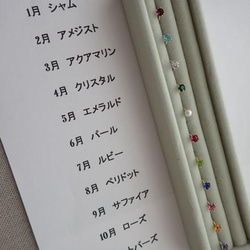 1月 シャム
2月 アメジスト
3月 アクアマリン
4月 クリスタル
5月 エメラルド
6月 パール
7月 ルビー
8月 ペリドット
9月 サファイア
10月 ローズ